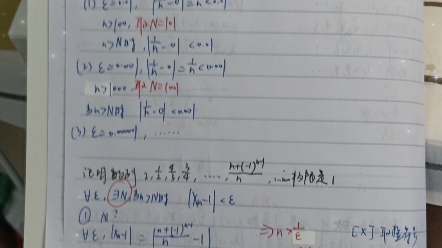 (1) ε=0.01, |1/n - 0| = 1/n < 0.01
n>100, 取 N=101
n>N时, |1/n - 0| < 0.01
(2) ε=0.001, |1/n - 0| = 1/n < 0.001
n>1000 取 N=1001
当n>N时 |1/n - 0| < 0.001
(3) ε=0.00001, ......
证明数列 2, 1/2, 4/3, 3/4, ...., (n+(-1)^(n-1))/n, ... 极限是 1
∀ε, ∃N, 当n>N时 |Xn-1| < ε
① N?
∀ε, |Xn-1| = |(n+(-1)^(n-1))/n - 1| ⇒ n > 1/ε [X] 取整符号